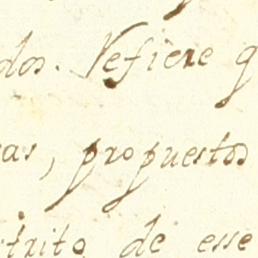 dos. Refiere q
as, propuestos
trito de esse